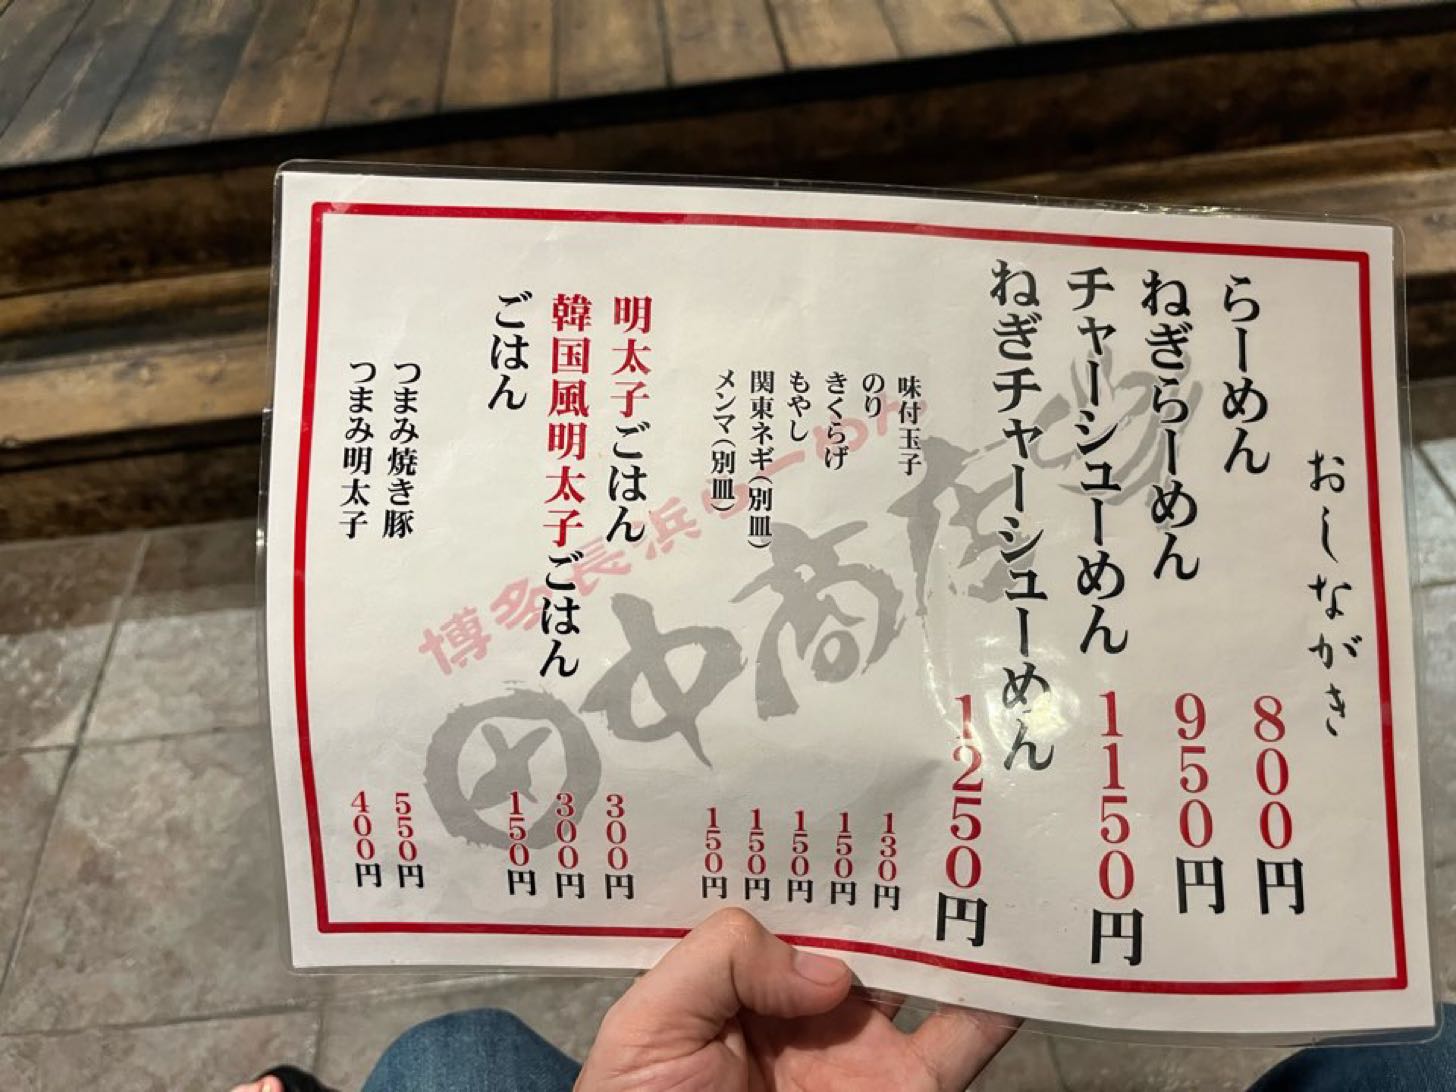 おしながき
らーめん 800円
ねぎらーめん 950円
チャーシューめん 1150円
ねぎチャーシューめん 1250円
味付玉子 130円
のり 150円
きくらげ 150円
もやし 150円
関東ネギ(別皿) 150円
メンマ(別皿)
明太子ごはん 300円
韓国風明太子ごはん 300円
ごはん 150円
つまみ焼き豚 550円
つまみ明太子 400円
博多長浜らーめん
田中商店